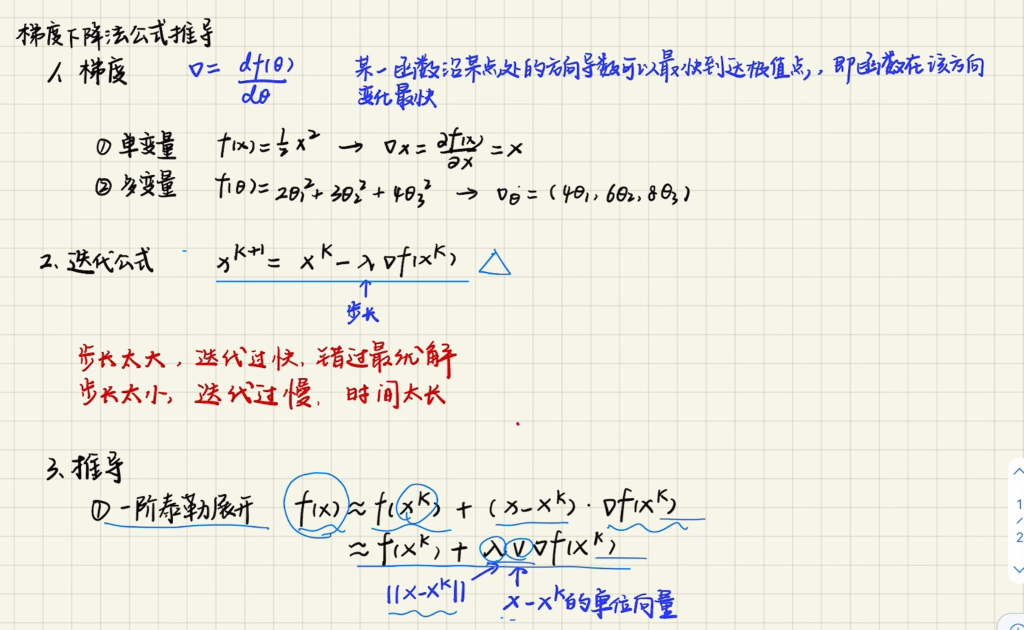 梯度下降法公式推导
1、梯度 ∇= df(θ)/dθ 某一函数沿某点处的方向导数可以最快到达极值点,即函数在该方向
变化最快
① 单变量 f(x)=½x² → ∇x = ∂f(x)/∂x = x
② 多变量 f(θ)= 2θ₁²+3θ₂²+4θ₃² → ∇θ = (4θ₁, 6θ₂, 8θ₃)
2、迭代公式 x^{K+1} = x^K - λ∇f(x^K) △
↑
步长
步长太大,迭代过快,错过最优解
步长太小,迭代过慢,时间太长
3、推导
① 一阶泰勒展开 f(x) ≈ f(x^K) + (x-x^K)·∇f(x^K)
≈ f(x^K) + λv∇f(x^K)
||x-x^K|| x-x^K的单位向量
1
/
2